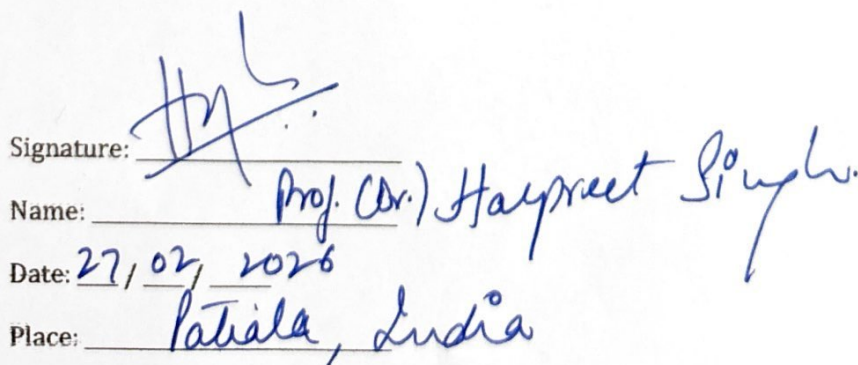 Signature:
Name: Prof. (Dr.) Harpreet Singh.
Date: 27/ 02/ 2026
Place: Patiala, India